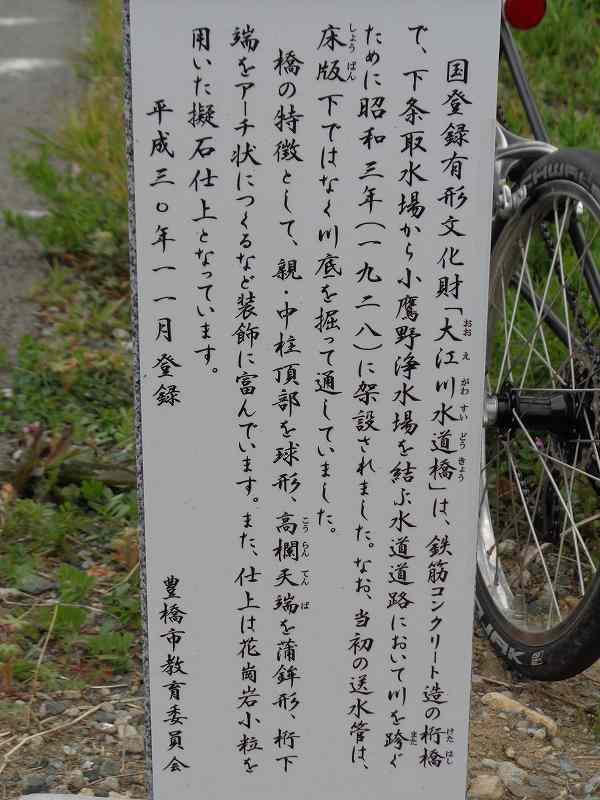 国登録有形文化財「大江川水道橋」は、鉄筋コンクリート造の桁橋
で、下条取水場から小鷹野浄水場を結ぶ水道道路において川を跨ぐ
ために昭和三年(一九二八)に架設されました。なお、当初の送水管は、
床版下ではなく川底を掘って通していました。
橋の特徴として、親・中柱頂部を球形、高欄天端を蒲鉾形、桁下
端をアーチ状につくるなど装飾に富んでいます。また、仕上は花崗岩小粒を
用いた擬石仕上となっています。
平成三〇年一一月登録
豊橋市教育委員会
SCHWALBE